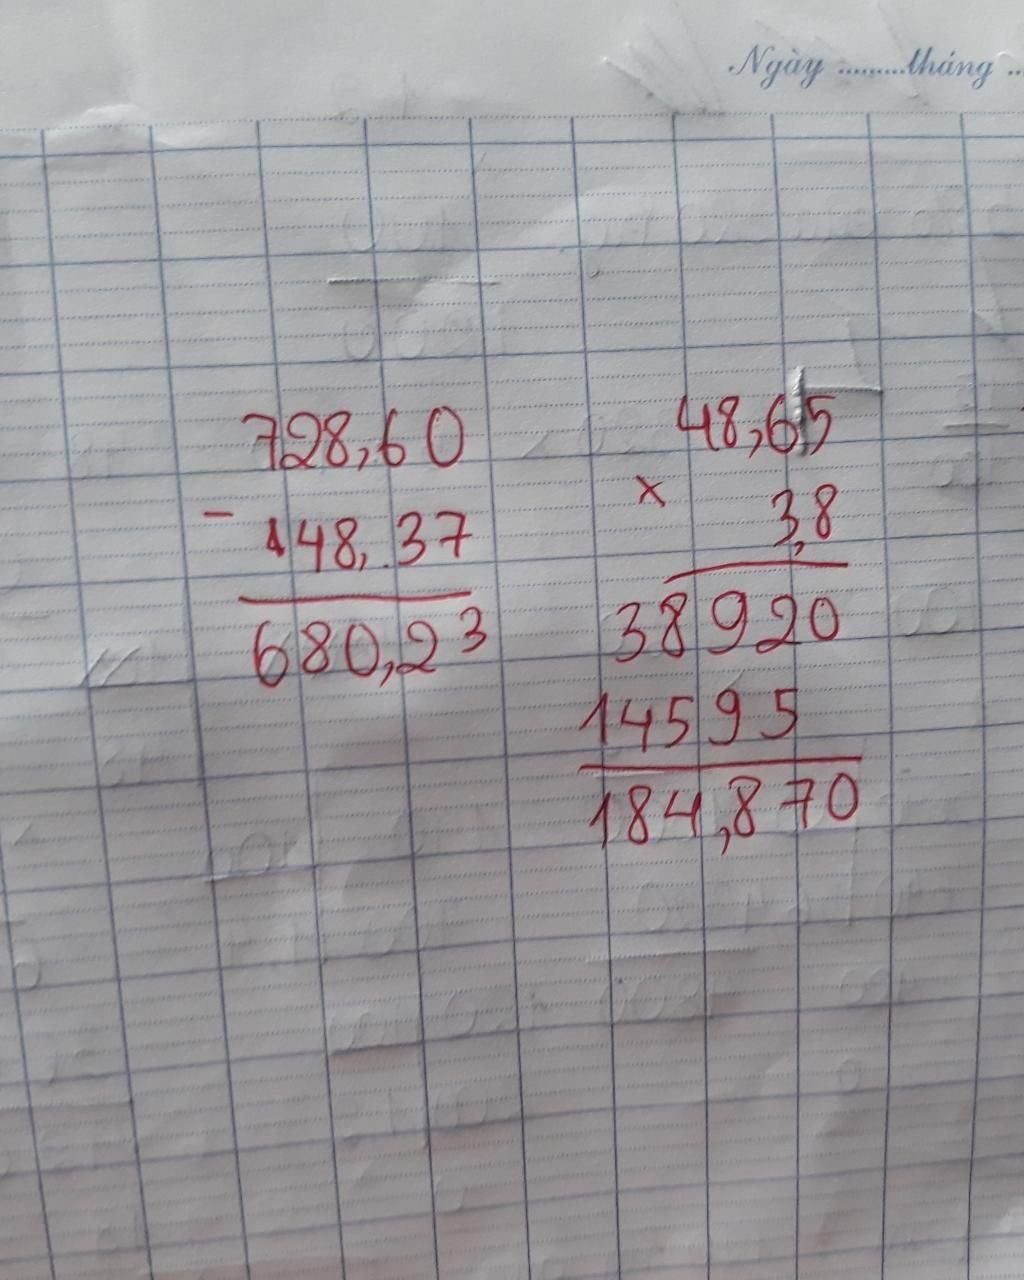 Ngày ........tháng ..
728,60
- 148,37
680,23
48,65
x 3,8
38920
14595
184,870